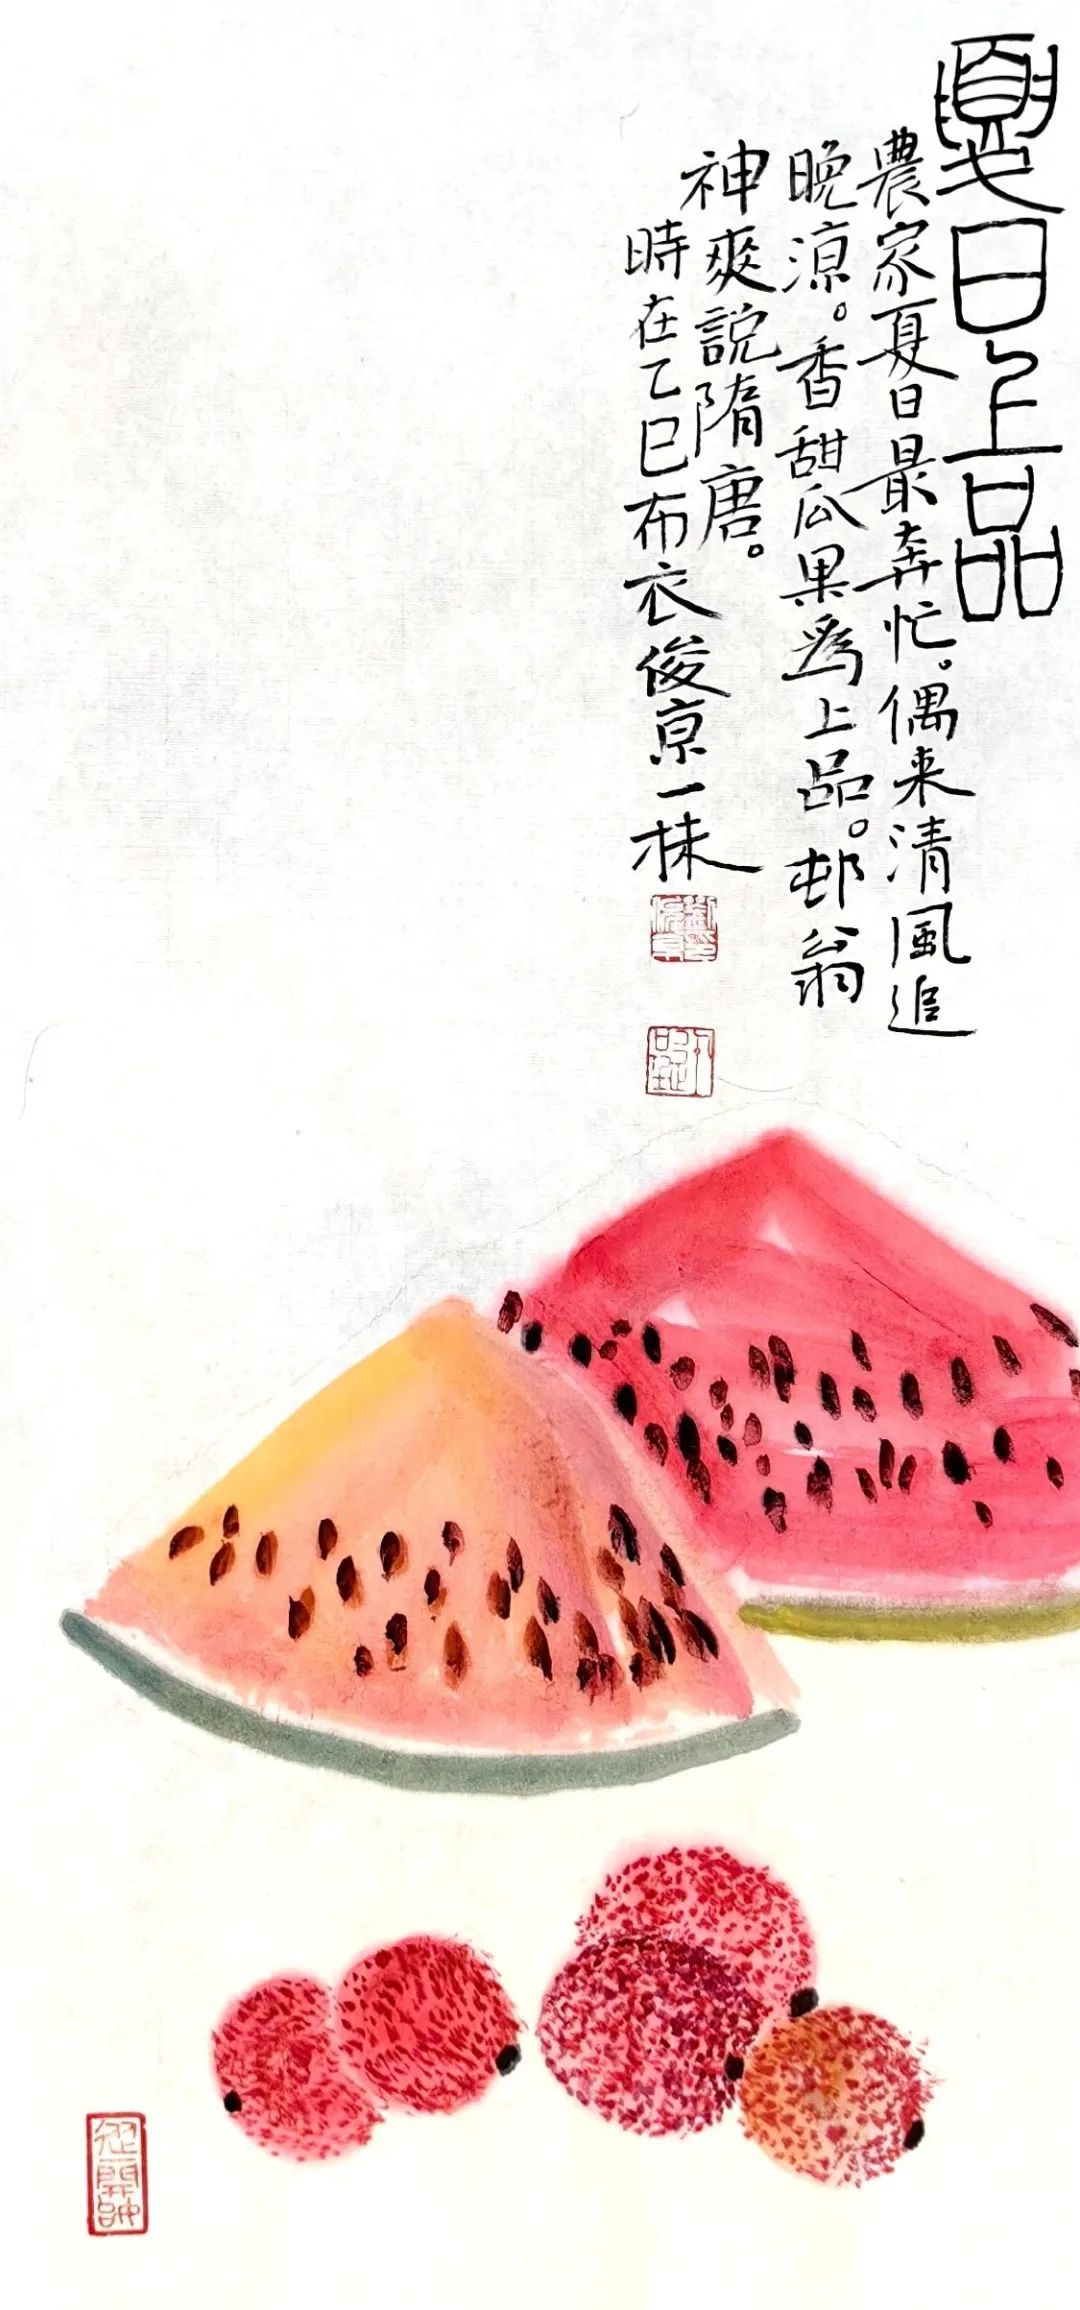 夏日上品
農家夏日最奔忙。偶来清風追
晚涼。香甜瓜果爲上品。邨翁
神爽說隋唐。
時在乙巳布衣俊京一株